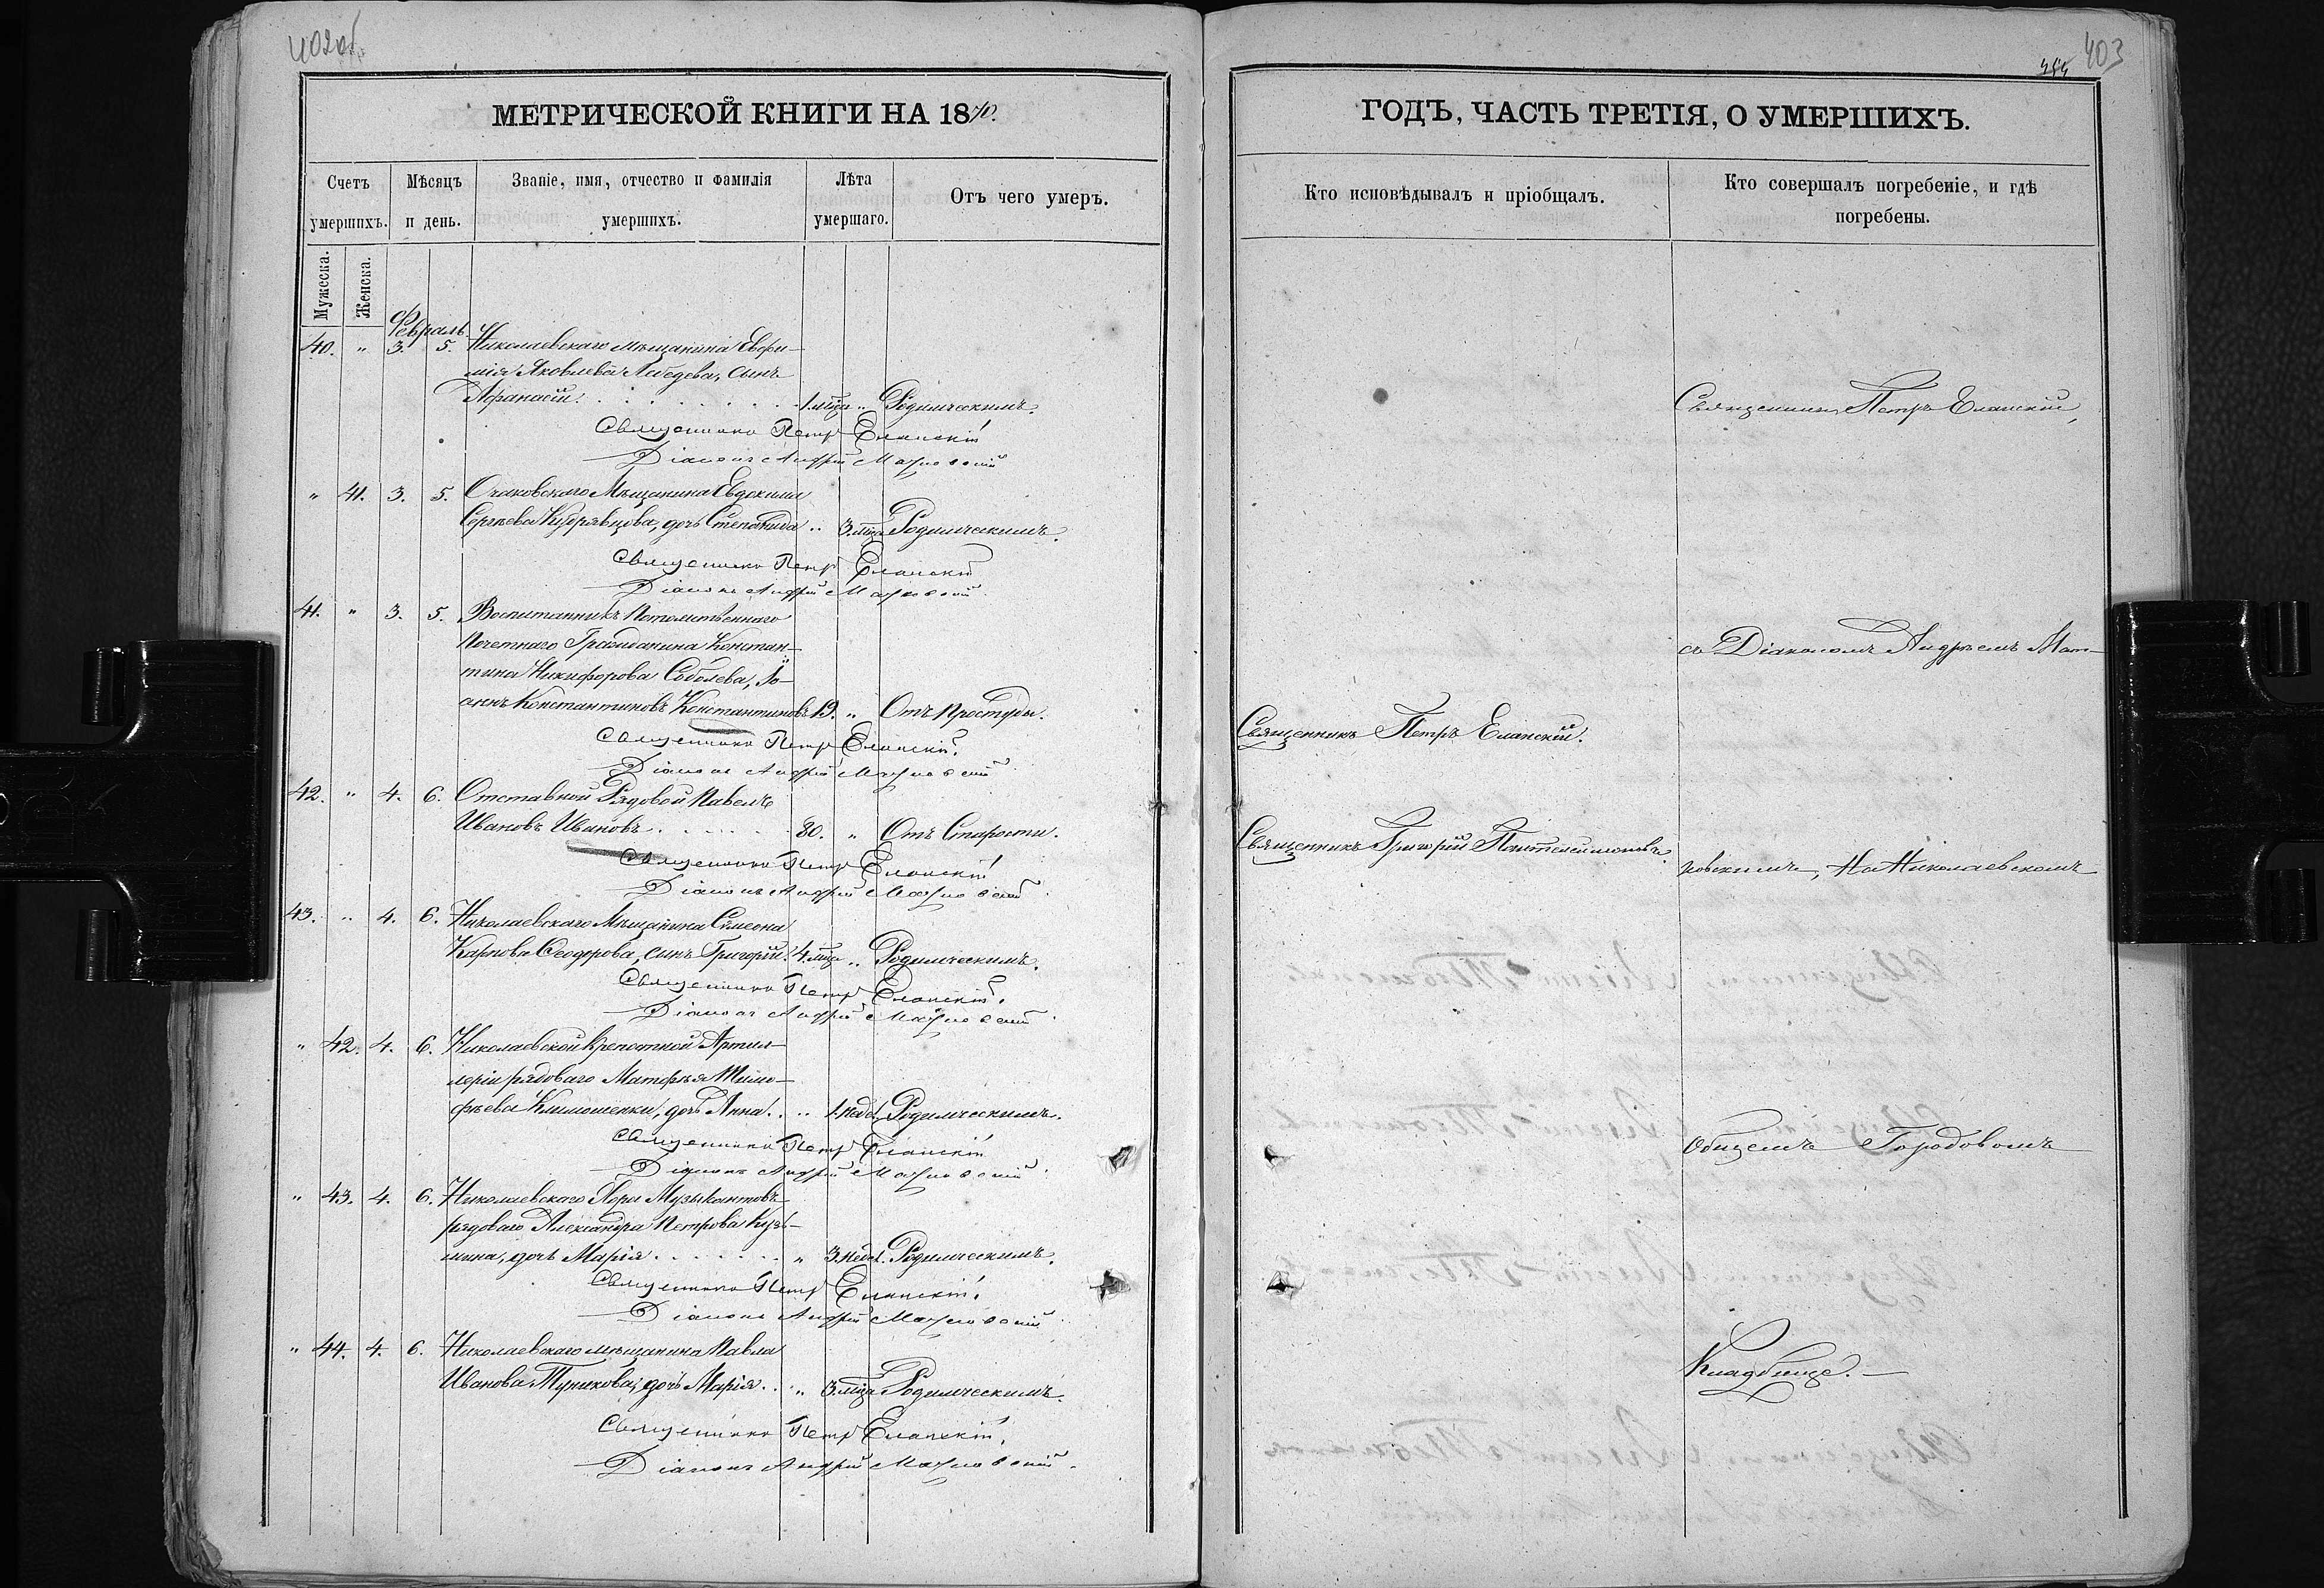 402об
МЕТРИЧЕСКОЙ КНИГИ НА 1870.
Счетъ умершихъ.
Мѣсяцъ и день.
Званіе, имя, отчество и фамилія умершихъ.
Лѣта умершаго.
Отъ чего умеръ.
Мужеска.
Женска.
Февраль
40. " 3. 5. Николаевскаго мѣщанина Евфи-
мія Яковлева Лебедева, сынъ
Афанасій. 1. мѣца " Родимческимъ.
Священникъ Петръ Еланскій
Діаконъ Андрей
" 41. 3. 5. Очаковскаго Мѣщанина Евдокима
Сергѣева Кудрявцова, дочь Степанида " 3. мѣца Родимческимъ.
Священникъ Петръ Еланскій
Діаконъ Андрей
41. " 3. 5. Воспитанникъ Потомственнаго
Почетнаго Гражданина Констан-
тина Никифорова Соболева, Іо-
аннъ Константиновъ Константиновъ 19. " Отъ простуды.
Священникъ Петръ Еланскій.
Діаконъ Андрей
42. " 4. 6. Отставной Рядовой Павелъ
Ивановъ Ивановъ 80. " Отъ Старости.
Священникъ Петръ Еланскій
Діаконъ Андрей
43. " 4. 6. Николаевскаго Мѣщанина Сѵмеона
Карпова Ѳеодорова, сынъ Григорій. 4. мѣца " Родимческимъ.
Священникъ Петръ Еланскій.
Діаконъ Андрей
" 42. 4. 6. Николаевской Крепостной Артил-
леріи рядоваго Матфѣя Тимо-
фѣева Климошенки, дочь Анна. " 1. недѣл. Родимческимъ.
Священникъ Петръ Еланскій
Діаконъ Андрей
" 43. 4. 6. Николаевскаго Хора Музыкантовъ
рядоваго Александра Петрова Кузь-
мина, дочь Марія " 3. недѣл. Родимческимъ.
Священникъ Петръ Еланскій.
Діаконъ Андрей
" 44. 4. 6. Николаевскаго мѣщанина Павла
Иванова дочь Марія. " 3 мѣца Родимческимъ.
Священникъ Петръ Еланскій.
Діаконъ Андрей
403
ГОДЪ, ЧАСТЬ ТРЕТІЯ, О УМЕРШИХЪ.
Кто исповѣдывалъ и пріобщалъ.
Кто совершалъ погребеніе, и гдѣ погребены.
Священникъ Петръ Еланскій,
съ Діакономъ Андреемъ
Священникъ Петръ Еланскій.
Священникъ Григорій Пантелеимоновъ.
ковскимъ, На Николаевскомъ
Общемъ Городовомъ
Кладбище. —